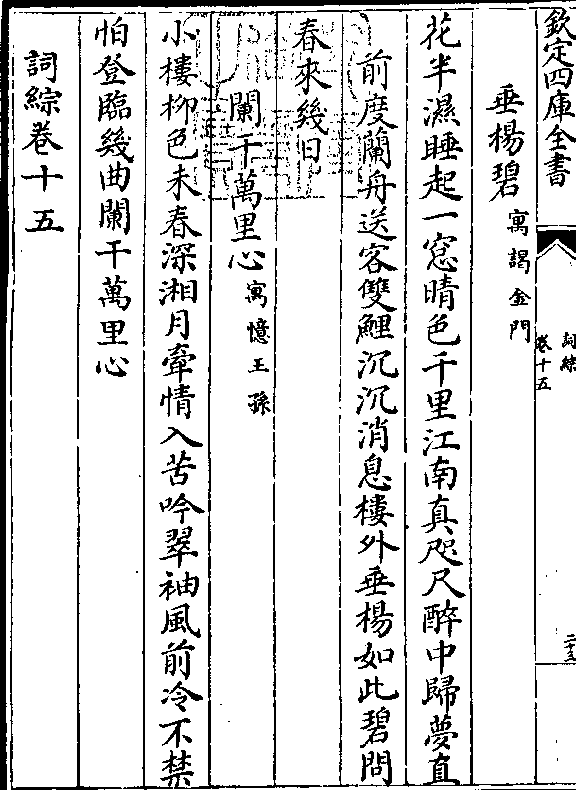 欽定四庫全書
詞綜
卷十五
垂楊碧寓謁金門
花半濕睡起一窻晴色千里江南真咫尺醉中歸夢直
前度蘭舟送客雙鯉沉沉消息樓外垂楊如此碧問
春來幾日
闌干萬里心寓憶王孫
小樓柳色未春深湘月牽情入苦吟翠袖風前冷不禁
怕登臨幾曲闌干萬里心
詞綜卷十五